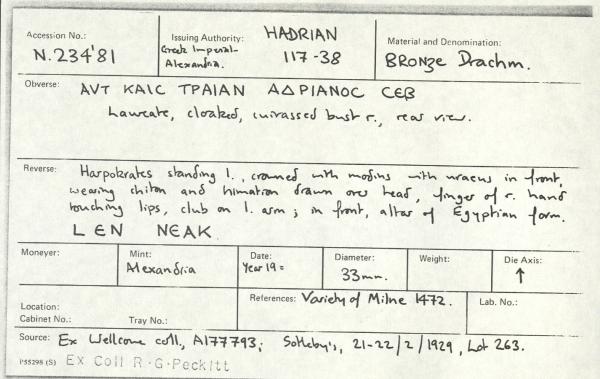 Accession No.:
N.234'81
Issuing Authority: HADRIAN
Greek Imperial- 117-38
Alexandria.
Material and Denomination:
BRONZE Drachm.
Obverse: ΑVΤ ΚΑΙC ΤΡΑΙΑΝ ΑΔΡΙΑΝΟC CΕΒ
Laureate, cloaked, cuirassed bust r., rear view.
Reverse: Harpokrates standing l., crowned with modius with uraeus in front,
wearing chiton and himation drawn over head, finger of r. hand
touching lips, club on l. arm; in front, altar of Egyptian form.
L ЄN NЄAK
Moneyer:
Mint:
Alexandria
Date:
Year 19 =
Diameter:
33mm.
Weight:
Die Axis:
↑
Location:
Cabinet No.: Tray No.:
References: Variety of Milne 1472.
Lab. No.:
Source: Ex Wellcome coll., A177793; Sotheby's, 21-22/2/1929, Lot 263.
P55298 (S) Ex Coll R·G·Peckitt